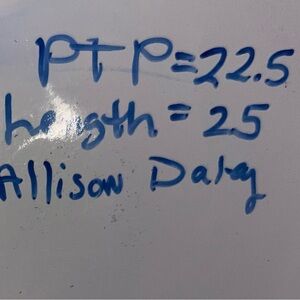 PTP=22.5
Length = 25
Allison Daley